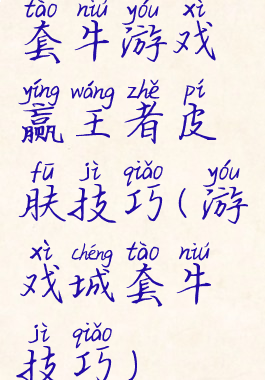 tào niú yóu xì
套牛游戏
yíng wáng zhě pí
赢王者皮
fū jì qiǎo yóu
肤技巧(游
xì chéng tào niú
戏城套牛
jì qiǎo
技巧)